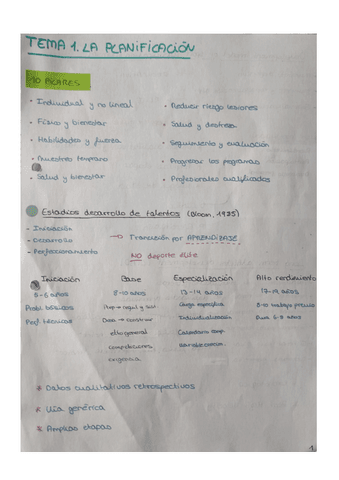 TEMA 1. LA PLANIFICACIÓN
10 PILARES
• Individual y no lineal
• Reducir riesgo lesiones
• Físico y bienestar
• Salud y destreza
• Habilidades y fuerza
• Seguimiento y evaluación
• Muestreo temprano
• Progresar los programas
• Salud y bienestar
• Profesionales cualificados
Estadios desarrollo de talentos (Bloom, 1985)
- Iniciación
- Desarrollo
→ Transición por APRENDIZAJE
- Perfeccionamiento
NO deporte élite
Iniciación Base Especialización Alto rendimiento
5-6 años 8-10 años 13-14 años 17-19 años
8-10 trabajo previo
Perf. técnicos → construir Individualización Dura 6-8 años
alto general Calendario comp.
competiciones
exigencia
* Datos cualitativos retrospectivos
* Vía genérica
* Amplias etapas
1